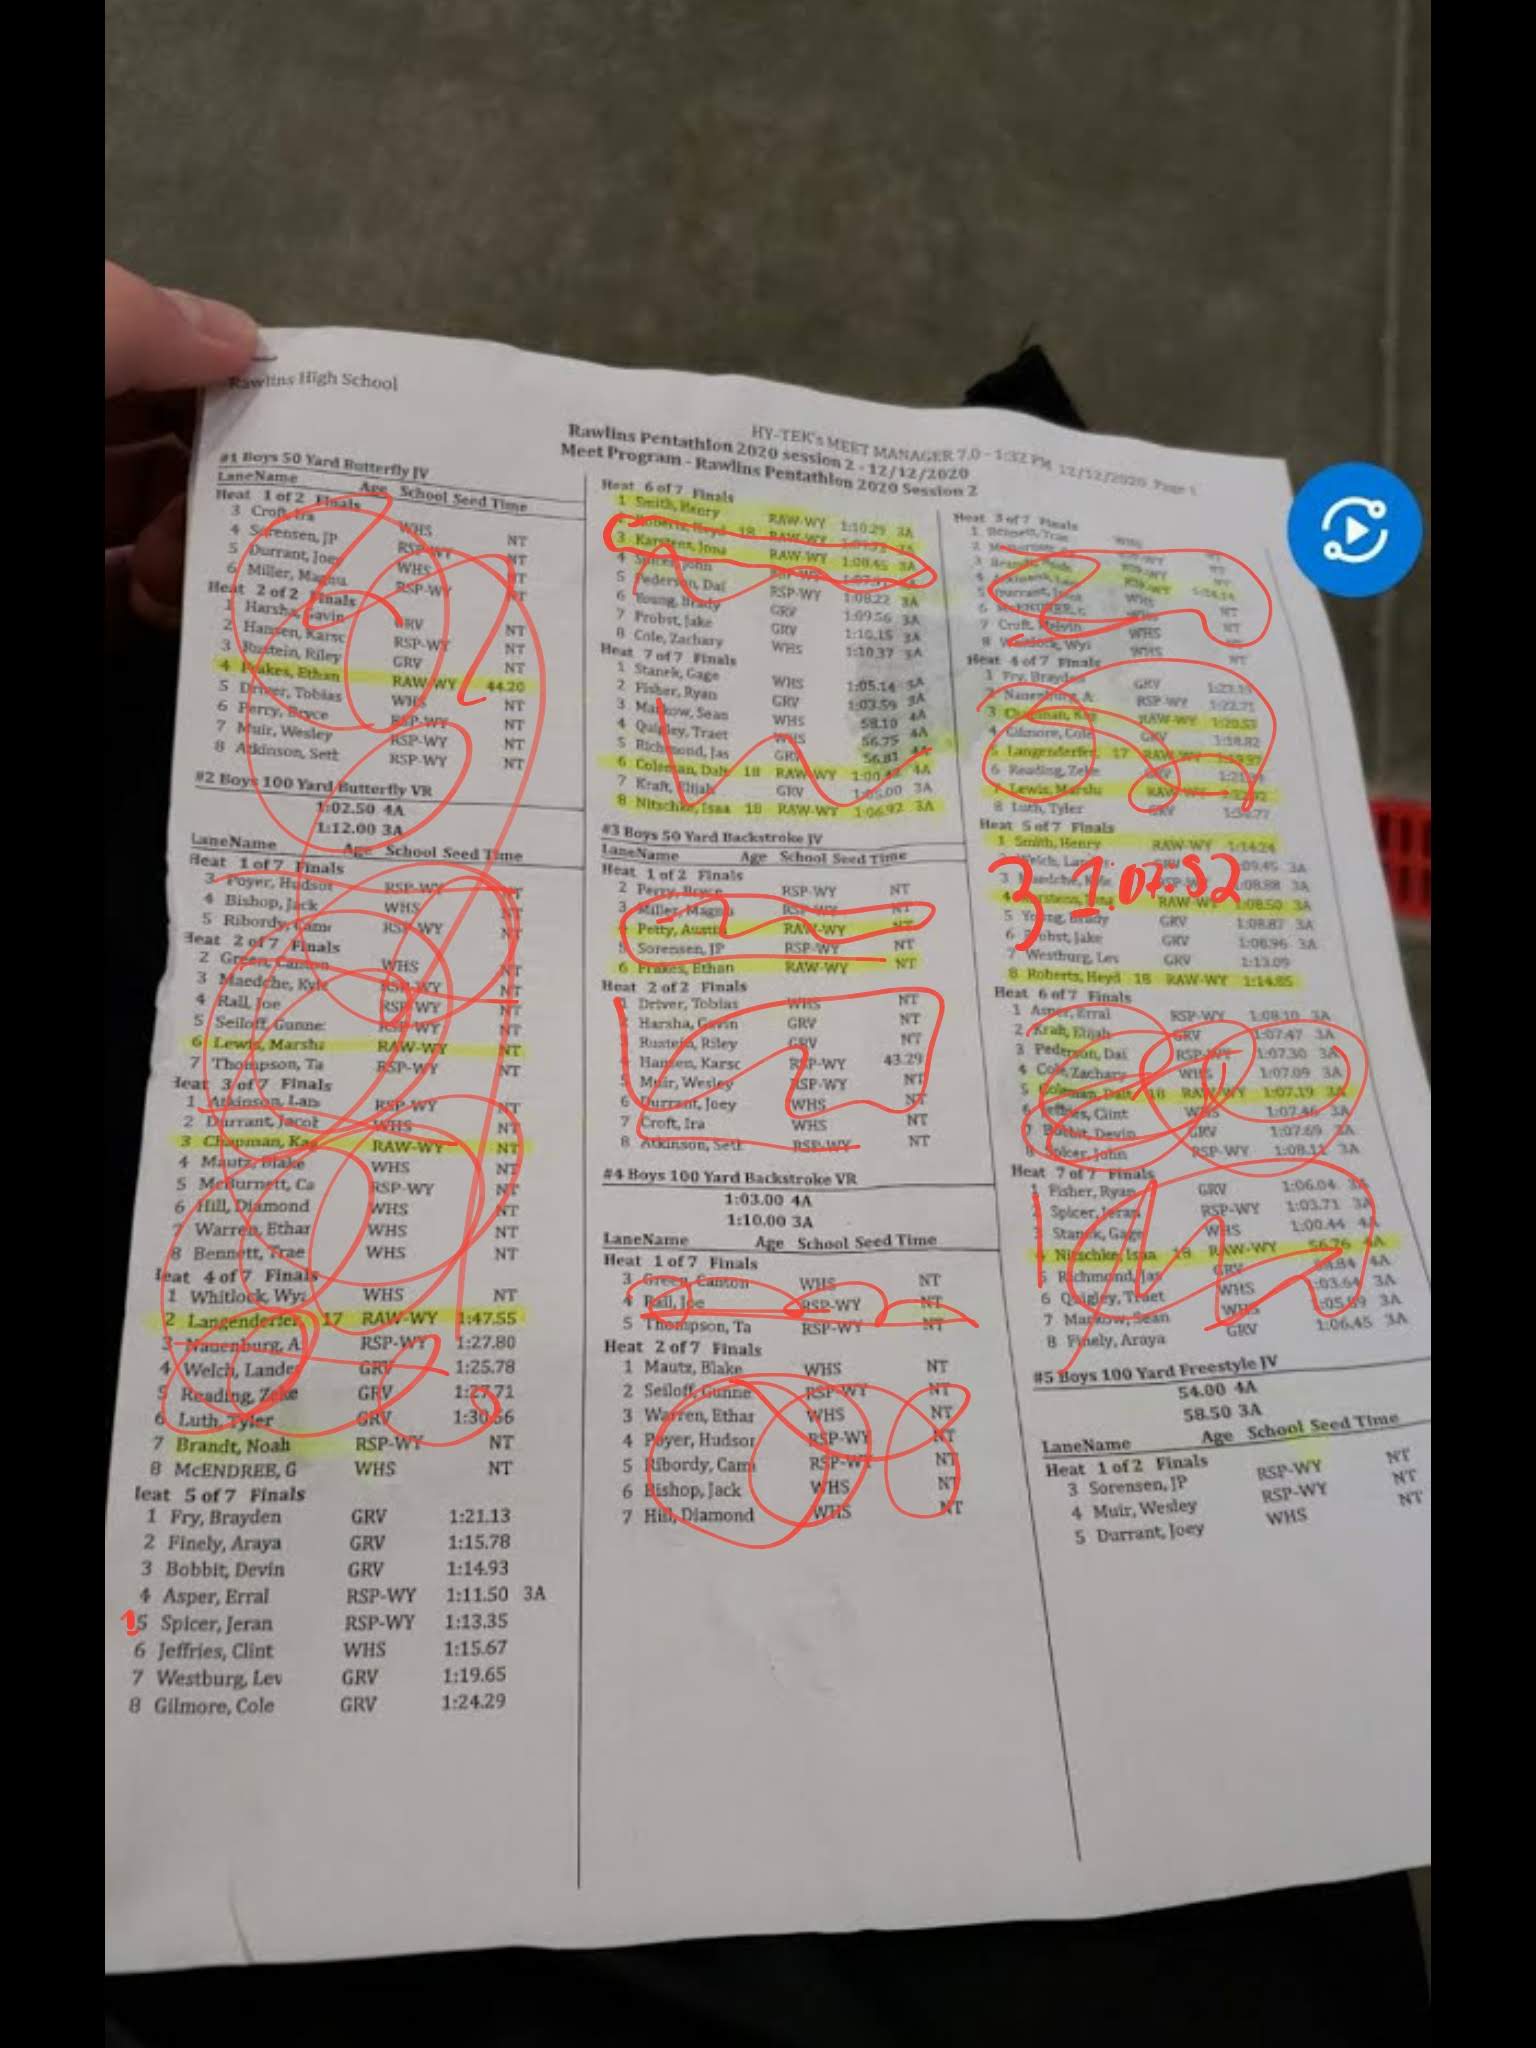 Rawlins High School
HY-TEK's MEET MANAGER 7.0 - 1:32 PM 12/12/2020 Page 1
Rawlins Pentathlon 2020 session 2 - 12/12/2020
Meet Program - Rawlins Pentathlon 2020 Session 2
#1 Boys 50 Yard Butterfly JV
LaneName Age School Seed Time
Heat 1 of 2 Finals
3 Croft, Ira WHS NT
4 Sorensen, JP RSP-WY NT
5 Durrant, Joey WHS NT
6 Miller, Magnu RSP-WY NT
Heat 2 of 2 Finals
1 Harsha, Gavin GRV NT
2 Hansen, Karsc RSP-WY NT
3 Rustein, Riley GRV NT
4 Frakes, Ethan RAW-WY 44.20
5 Driver, Tobias WHS NT
6 Perry, Bryce RSP-WY NT
7 Muir, Wesley RSP-WY NT
8 Atkinson, Seth RSP-WY NT
#2 Boys 100 Yard Butterfly VR
1:02.50 4A
1:12.00 3A
LaneName Age School Seed Time
Heat 1 of 7 Finals
3 Poyer, Hudsor RSP-WY NT
4 Bishop, Jack WHS NT
5 Ribordy, Came RSP-WY NT
Heat 2 of 7 Finals
2 Green, Canton WHS NT
3 Maedche, Kyle RSP-WY NT
4 Rall, Joe RSP-WY NT
5 Seiloff, Gunne: RSP-WY NT
6 Lewis, Marsha RAW-WY NT
7 Thompson, Ta RSP-WY NT
Heat 3 of 7 Finals
1 Atkinson, Lan RSP-WY NT
2 Durrant, Jacob WHS NT
3 Chapman, Kag RAW-WY NT
4 Mautz, Blake WHS NT
5 McBurnett, Ca RSP-WY NT
6 Hill, Diamond WHS NT
7 Warren, Ethar WHS NT
8 Bennett, Trae WHS NT
Heat 4 of 7 Finals
1 Whitlock, Wya WHS NT
2 Langenderfer, 17 RAW-WY 1:47.55
3 Nauenburg, A RSP-WY 1:27.80
4 Welch, Lander GRV 1:25.78
5 Reading, Zeke GRV 1:27.71
6 Luth, Tyler GRV 1:30.56
7 Brandt, Noah RSP-WY NT
8 McENDREE, G WHS NT
Heat 5 of 7 Finals
1 Fry, Brayden GRV 1:21.13
2 Finely, Araya GRV 1:15.78
3 Bobbit, Devin GRV 1:14.93
4 Asper, Erral RSP-WY 1:11.50 3A
1 5 Spicer, Jeran RSP-WY 1:13.35
6 Jeffries, Clint WHS 1:15.67
7 Westburg, Lev GRV 1:19.65
8 Gilmore, Cole GRV 1:24.29
Heat 6 of 7 Finals
1 Smith, Henry RAW-WY 1:10.29 3A
Roberts, Heyd 18 RAW-WY 3A
3 Karstens, Jona RAW-WY 1:08.45 3A
4 Spicer, John RSP-WY
5 Pederson, Dal RSP-WY 1:08.22 3A
6 Young, Brady GRV 1:09.56 3A
7 Probst, Jake GRV 1:10.15 3A
8 Cole, Zachary WHS 1:10.37 3A
Heat 7 of 7 Finals
1 Stanek, Gage WHS 1:05.14 3A
2 Fisher, Ryan GRV 1:03.59 3A
3 Markow, Sean WHS 58.10 4A
4 Quigley, Traet WHS 56.75 4A
5 Richmond, Jas GRV 56.81 4A
6 Coleman, Dalt 18 RAW-WY 4A
7 Kraft, Elijah GRV 1:05.00 3A
8 Nitschke, Isaa 18 RAW-WY 1:06.92 3A
#3 Boys 50 Yard Backstroke JV
LaneName Age School Seed Time
Heat 1 of 2 Finals
2 Perry, Bryce RSP-WY NT
3 Miller, Magnu RSP-WY NT
Petty, Austin RAW-WY NT
5 Sorensen, JP RSP-WY NT
6 Frakes, Ethan RAW-WY NT
Heat 2 of 2 Finals
1 Driver, Tobias WHS NT
2 Harsha, Gavin GRV NT
3 Rustein, Riley GRV NT
4 Hansen, Karsc RSP-WY 43.29
5 Muir, Wesley RSP-WY NT
6 Durrant, Joey WHS NT
7 Croft, Ira WHS NT
8 Atkinson, Seth RSP-WY NT
#4 Boys 100 Yard Backstroke VR
1:03.00 4A
1:10.00 3A
LaneName Age School Seed Time
Heat 1 of 7 Finals
3 Green, Canton WHS NT
4 Rall, Joe RSP-WY NT
5 Thompson, Ta RSP-WY NT
Heat 2 of 7 Finals
1 Mautz, Blake WHS NT
2 Seiloff, Gunne RSP-WY NT
3 Warren, Ethar WHS NT
4 Poyer, Hudsor RSP-WY NT
5 Ribordy, Cam RSP-WY NT
6 Bishop, Jack WHS NT
7 Hill, Diamond WHS NT
Heat 3 of 7 Finals
1 Bennett, Trae WHS NT
7 Croft, Melvin WHS NT
8 Whitlock, Wya WHS NT
Heat 4 of 7 Finals
1 Fry, Brayden GRV
2 Nauenburg, A RSP-WY 1:22.71
3 Chapman, Kag RAW-WY
4 Gilmore, Cole GRV 1:18.82
5 Langenderfer, 17 RAW-WY
6 Reading, Zeke GRV
7 Lewis, Marsha RAW-WY
8 Luth, Tyler GRV
Heat 5 of 7 Finals
1 Smith, Henry RAW-WY 1:14.24
3 1:07.52
5 Young, Brady GRV 1:08.87 3A
6 Probst, Jake GRV 1:08.96 3A
7 Westburg, Lev GRV 1:13.09
8 Roberts, Heyd 18 RAW-WY 1:14.85
Heat 6 of 7 Finals
1 Asper, Erral RSP-WY 1:08.10 3A
2 Kraft, Elijah GRV 1:07.47 3A
3 Pederson, Dal RSP-WY 1:07.30 3A
4 Cole, Zachary WHS 1:07.09 3A
5 Coleman, Dalt 18 RAW-WY 1:07.19 3A
6 Jeffries, Clint WHS 1:07.46 3A
7 Bobbit, Devin GRV 1:07.69 3A
8 Spicer, John RSP-WY 1:08.11 3A
Heat 7 of 7 Finals
1 Fisher, Ryan GRV 1:06.04 3A
2 Spicer, Jeran RSP-WY 1:03.71 3A
3 Stanek, Gage WHS 1:00.44 4A
4 Nitschke, Isaa 18 RAW-WY 56.76 4A
5 Richmond, Jas GRV 4A
6 Quigley, Traet WHS 1:03.64 3A
7 Markow, Sean WHS 3A
8 Finely, Araya GRV 1:06.45 3A
#5 Boys 100 Yard Freestyle JV
54.00 4A
58.50 3A
LaneName Age School Seed Time
Heat 1 of 2 Finals
3 Sorensen, JP RSP-WY NT
4 Muir, Wesley RSP-WY NT
5 Durrant, Joey WHS NT